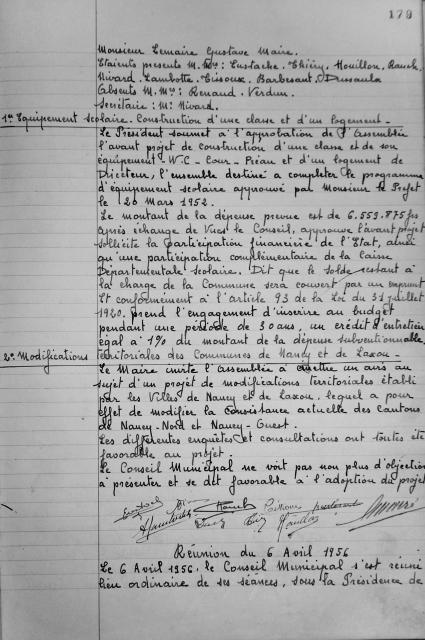 179
Monsieur Lemaire Gustave Maire.
Etaients presents M.Mrs: Eustache. Thiéry. Houillon. Rauch.
Nivard. Lambotte. Crisoux. Barbesant. Dussaula
Absents M.Mrs: Renaud. Verdun.
Secrétaire: Mr Nivard.
1º Equipement scolaire. Construction d'une classe et d'un logement.
Le Président soumet à l'approbation de l'Assemblée
l'avant projet de construction d'une classe et de son
équipement - W-C - Cour - Préau et d'un logement de
Directeur, l'ensemble destiné a completer le programme
d'équipement scolaire approuvé par Monsieur le Préfet
le 20 Mars 1952.
Le montant de la dépense prevue est de 6.559.875 frs
après échange de Vues le Conseil, approuve l'avant projet
sollicite la participation financière de l'Etat, ainsi
qu'une participation complémentaire de la Caisse
Départementale scolaire. Dit que le solde restant à
la charge de la Commune sera couvert par un emprunt
Et conformément à l'Article 93 de la Loi du 31 juillet
1920. prend l'engagement d'inscrire au budget
pendant une période de 30 ans, un crédit d'entretien
égal à 1% du montant de la dépense subventionnable
2º Modifications territoriales des Communes de Nancy et de Laxou.
Le Maire invite l'Assemblée à émettre un avis au
sujet d'un projet de modifications territoriales établi
par les Villes de Nancy et de Laxou, lequel a pour
effet de modifier la consistance actuelle des cantons
de Nancy-Nord et Nancy-Ouest.
Les differentes enquêtes et consultations ont toutes été
favorable au projet.
Le Conseil Municipal ne voit pas non plus d'objection
à présenter et se dit favorable à l'adoption du projet
Réunion du 6 Avril 1956
Le 6 Avril 1956, le Conseil Municipal s'est réuni
lieu ordinaire de ses séances, sous la Présidence de